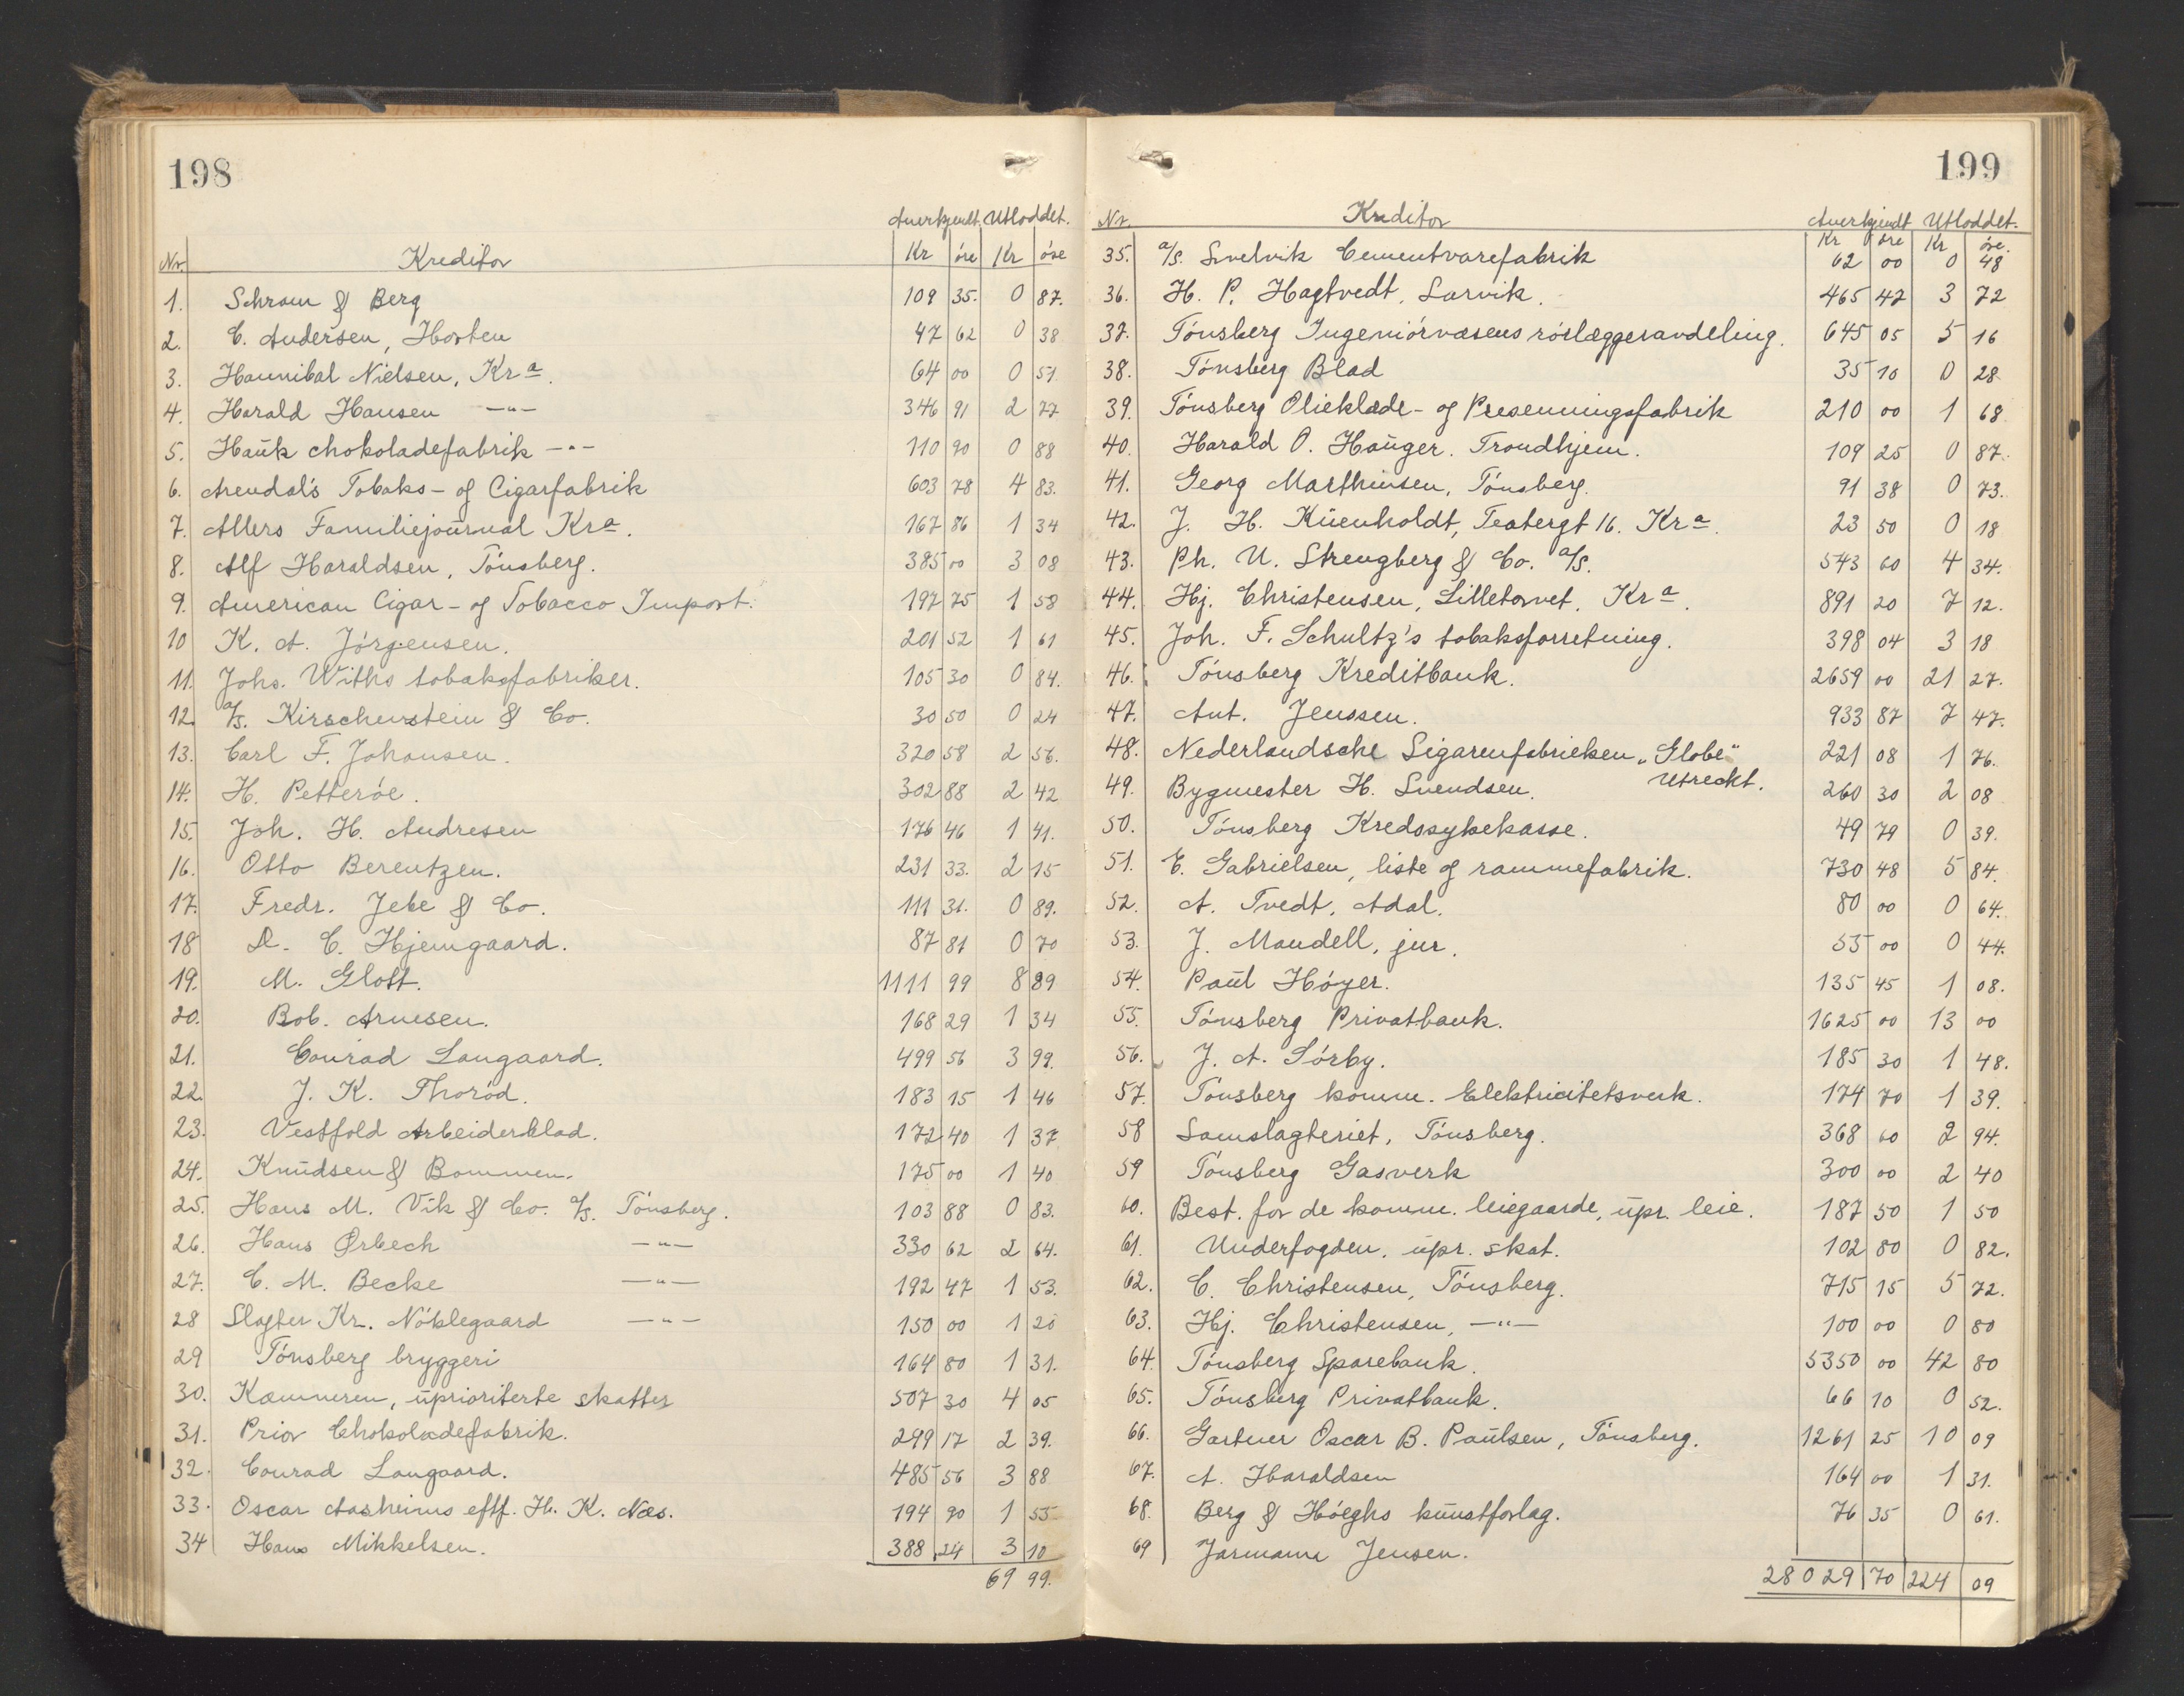 198
Anerkjendt. Utloddet.
Nr. Kreditor Kr øre Kr øre
1. Schram & Berg 109 35. 0 87.
2. C. Andersen, Horten 47 62 0 38
3. Hannibal Nielsen, Kra. 64 00 0 51
4. Harald Hansen —"— 346 91 2 77
5. Hauk chokoladefabrik —"— 110 90 0 88
6. Arendal's Tobaks- og Cigarfabrik 603 78 4 83.
7. Allers Familiejournal Kra. 167 86 1 34
8. Alf Haraldsen, Tønsberg. 385 00 3 08
9. American Cigar- og Tobacco Import. 197 75 1 58
10 K. A. Jørgensen. 201 52 1 61
11. Johs. Withs tobaksfabriker. 105 30 0 84.
12. a/s. Kirschenstein & Co. 30 50 0 24
13. Carl F. Johansen. 320 58 2 56.
14. H. Petterøe. 302 88 2 42
15. Joh. H. Andresen 176 46 1 41.
16. Otto Berentzen. 231 33. 2 15
17. Fredr. Jebe & Co. 111 31. 0 89.
18 D. C. Hjemgaard. 87 81 0 70
19. M. Glott. 1111 99 8 89
20. Bob. Arnesen. 168 29 1 34
21. Conrad Langaard. 499 56 3 99.
22. J. K. Thorød. 183 15 1 46
23. Vestfold Arbeiderblad. 172 40 1 37
24. Knudsen & Bommen. 175 00 1 40
25. Hans M. Vik & Co. a/s. Tønsberg. 103 88 0 83.
26. Hans Ørbech —"— 330 62 2 64.
27. C. M. Becke —"— 192 47 1 53.
28 Slagter Kr. Nøklegaard —"— 150 00 1 20
29 Tønsberg bryggeri 164 80 1 31.
30. Kæmneren, uprioriterte skatter 507 30 4 05
31. Prior Chokoladefabrik. 299 17 2 39.
32. Conrad Langaard. 485 56 3 88
33. Oscar Aasheims eftf. H. K. Næs. 194 90 1 55
34 Hans Mikkelsen. 388 24 3 10
69 99.
199
Nr. Kreditor Anerkjendt Utloddet.
Kr øre Kr øre.
35. a/s. Svelvik Cementvarefabrik 62 00 0 48
36. H. P. Hagtvedt, Larvik. 465 47 3 72
37. Tønsberg Ingeniørvæsens rørlæggeravdeling. 645 05 5 16
38. Tønsberg Blad 35 10 0 28
39. Tønsberg Olieklæde- og Presenningsfabrik 210 00 1 68
40. Harald O. Hauger. Trondhjem. 109 25 0 87.
41. Georg Marthinsen, Tønsberg. 91 38 0 73.
42. J. H. Küenholdt, Teatergt 16. Kra. 23 50 0 18
43. Ph. U. Strengberg & Co. a/s. 543 60 4 34.
44. Hj. Christensen, Lilletorvet, Kra. 891 20 7 12.
45. Joh. F. Schultz's tobaksforretning. 398 04 3 18
46. Tønsberg Kreditbank. 2659 00 21 27.
47. Ant. Jenssen. 933 87 7 47.
48. Nederlandsche Sigarenfabrieken „Globe" 221 08 1 76.
Utreckt.
49. Bygmester H. Svendsen. 260 30 2 08
50. Tønsberg Kredssykekasse. 49 79 0 39.
51. E. Gabrielsen, liste og rammefabrik. 730 48 5 84.
52. A. Tvedt, Adal. 80 00 0 64.
53. J. Mandell, jur. 55 00 0 44.
54. Paul Høyer. 135 45 1 08.
55. Tønsberg Privatbank. 1625 00 13 00
56. J. A. Sørby. 185 30 1 48.
57. Tønsberg komm. Elektricitetsverk. 174 70 1 39.
58 Samslagteriet, Tønsberg. 368 60 2 94.
59 Tønsberg Gasverk 300 00 2 40
60. Best. for de komm. leiegaarde, upr. leie. 187 50 1 50
61. Underfogden, upr. skat. 102 80 0 82.
62. C. Christensen, Tønsberg. 715 15 5 72.
63. Hj. Christensen, —"— 100 00 0 80
64. Tønsberg Sparebank. 5350 00 42 80
65. Tønsberg Privatbank. 66 10 0 52.
66. Gartner Oscar B. Paulsen, Tønsberg. 1261 25 10 09
67. A. Haraldsen 164 00 1 31.
68. Berg & Høeghs kunstforlag. 76 35 0 61.
69 Jarmann Jensen.
28029 70 224 09